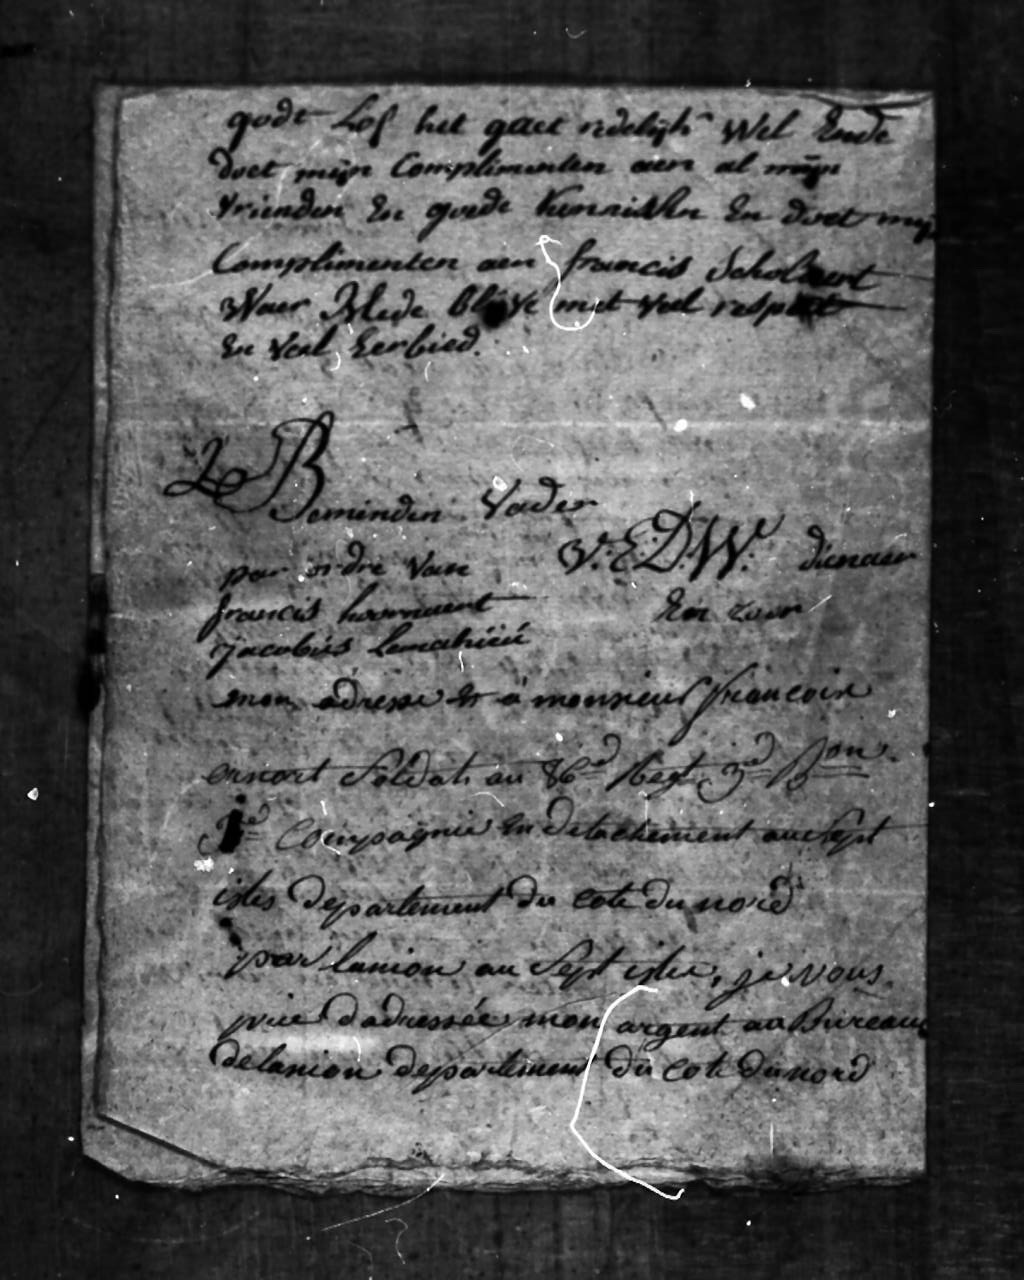 godt Lof het gaet redelijk Wel Ende
doet mijn Complimenten aen al mijn
vrienden En goede kennissen En doet mijn
Complimenten aen francis
Waer Mede blyve met veel respect
En veel Eerbied.
Beminden Vader
por ordre van V.E.D.W. dienaer
francis En zoon
jacobús
mon adresse et à monsieur francois
Soldat au 86ed Regt 3ed Bon
Compagnie En detachement au Sept
isles departement du cote du nord
par lanion au Sept isles, je vous
prie dadressée mon argent au Bureau
de lanion departement du cote du nord